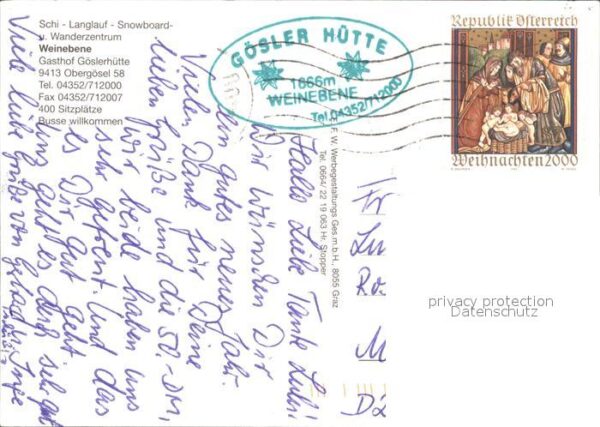 Schi - Langlauf - Snowboard-
u. Wanderzentrum
Weinebene
Gasthof Göslerhütte
9413 Obergösel 58
Tel. 04352/712000
Fax 04352/712007
400 Sitzplätze
Busse willkommen
GÖSLER HÜTTE
1666m
WEINEBENE
Tel.04352/712000
Republik Österreich
Weihnachten 2000
F. W. Werbegestaltungs Ges.m.b.H., 8055 Graz
Tel. 0664/ 22 19 063 Hr. Stopper
Hallo Liebe Tante Luhi!
Wir wünschen Dir
ein gutes neues Jahr.
Vielen Dank für Deine
lieben Grüße und die 50,-DM,
wir beide haben uns
sehr gefreut. Und das
es Dir gut geht.
Uns geht es auch sehr gut
Viele liebe Grüße von
Fr
Lu
Ro
M
D2
privacy protection
Datenschutz